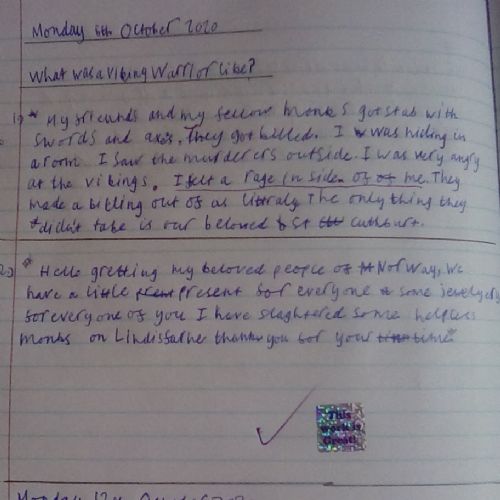 Monday 6th October 2020
What was a viking Warrior like?
1) "My friends and my fellow monks got stab with
swords and axes. They got killed. I was hiding in
a room I saw the murderers outside. I was very angry
at the vikings. I felt a rage in side of me. They
made a killing out of us literaly The only thing they
didn't take is our beloved St cuthburt.
2) "Hello gretting my beloved people of Norway, we
have a little present for everyone some jewelyery
for everyone of you I have slaghtered some helpless
monks on Lindisfarne thank you for your time"
This
work is
Great!
Monday 12th October 2020